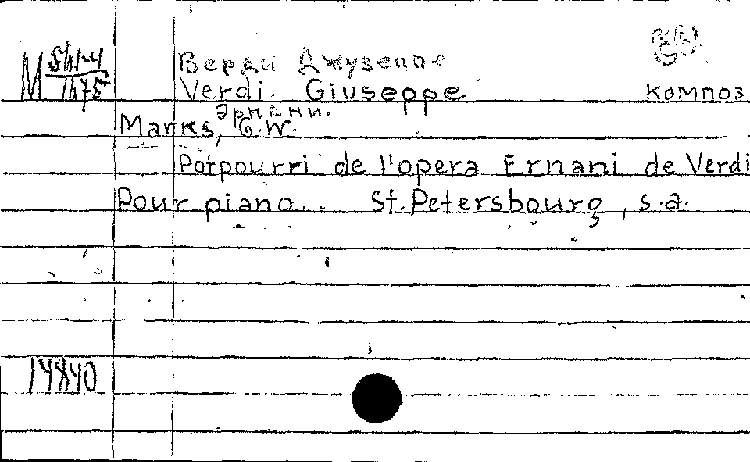 М
Верди Джузеппе
Verdi Giuseppe композ
Эрнани.
Marks, G.W.
Potpourri de l'opera Ernani de Verdi
Pour piano.. St. Petersbourg, s.a.